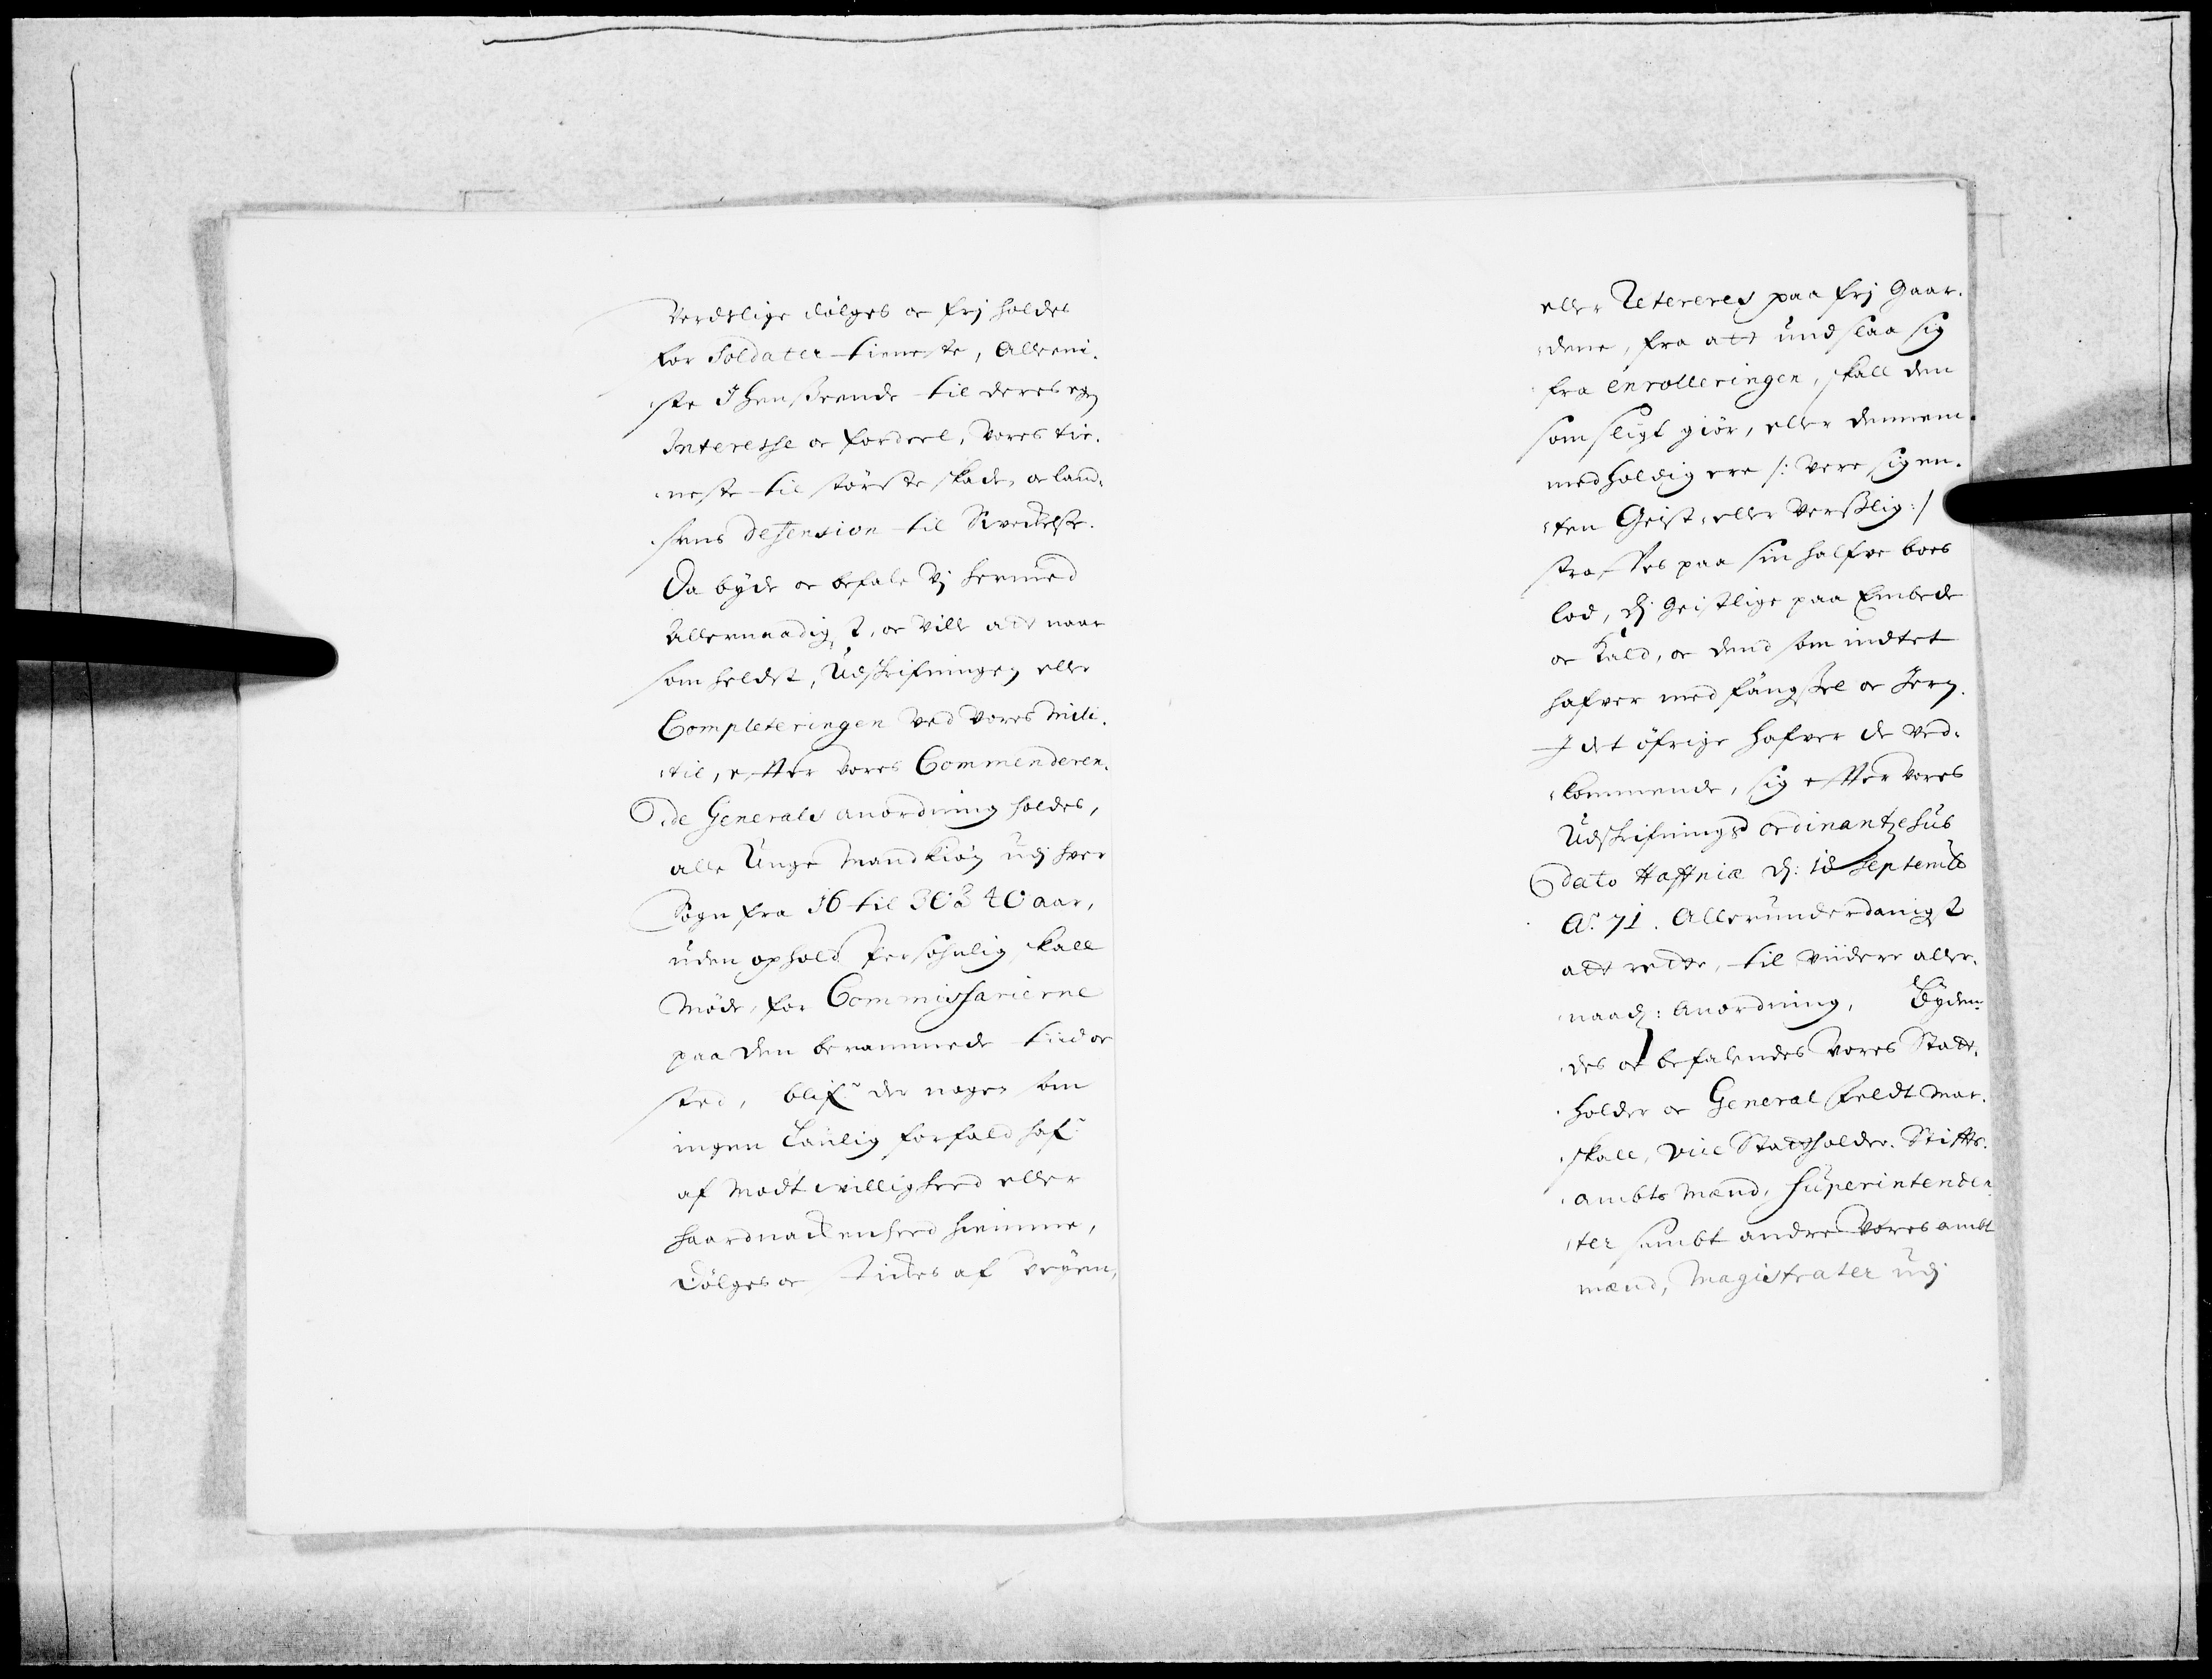 Verdslige dölges oc frj holdes
for Soldater tieneste, Alleeni-
ste J henseende til deres egen
Interesse oc fordeel, Vores tie-
neste til störste skade, oc land-
sens defension til Sveckelse.
Da byde oc befale Vj hermed
Allernaadigst, oc Ville att naar
som heldst, Udskrifningen eller
Completeringen ved Vores Mili-
tie, effter Vores Commenderen-
de Generals anordning holdes,
alle Unge Mandkiön udj hver
Sogn fra 16 til 30 à 40 aar,
uden ophold Persohnlig skall
Möde, for Commissarierne
paa den berammede tiid oc
sted, blifr der nogen som
ingen Laulig forfald hafr
af Modtvillighed eller
haardnackenheed hiemme,
Dölges oc stickes af Veyen,
eller Retereres paa frj Gaar-
dene, fra att undslaa sig
fra enrolleringen, skall den
som sligt giör, eller dennem
medholdig ere /: Vere sig en-
ten Geist- eller Verslig :/
straffes paa sin halfve boes
lod, dj Geistlige paa Embede
oc Kald, oc dend som indtet
hafver med fängsel oc Jern.
J det öfrige hafver de Ved-
kommende, sig effter Vores
Udskrifnings ordinantze sub
dato Haffniæ d: 18 Septemb
Ao: 71. Allerunderdanigst
att rette, til Viidere aller-
naad: Anordning, Byden-
des oc befalendes Vores Statt-
holder oc General feldt Mar-
skall, Vice Stattholder. Stiffts-
ambts Mænd, Superintenden-
ter sambt andre Vores ambt
mænd, Magistrater udj